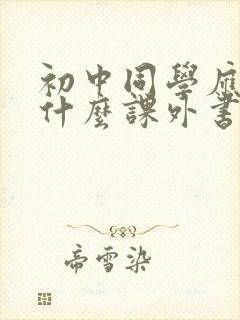 初中同學應
什麼課外書
帝雪染